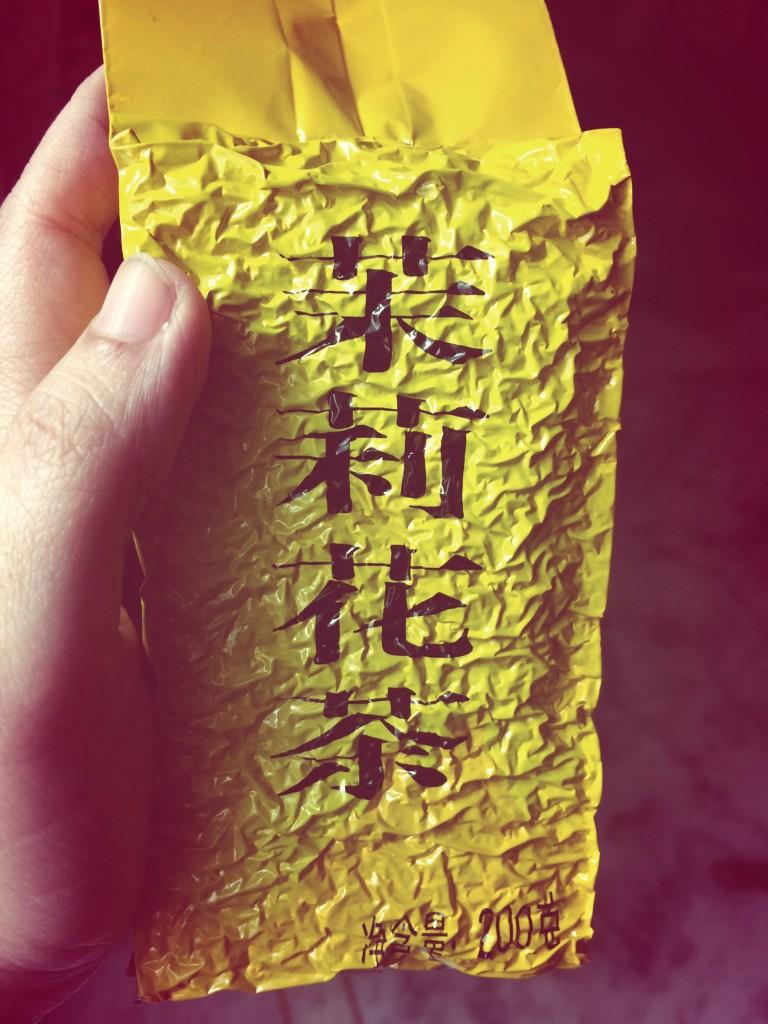 茉莉花茶
净含量 200克